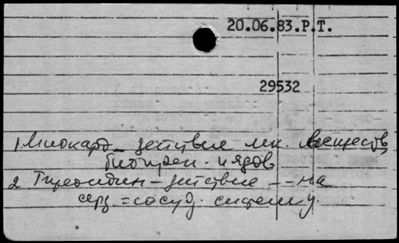 20.06.83.Р.Т.
29532
1 Миокард – действие лек. веществ,
и ядов
2 Тиреоидин – действие – – на
серд.=сосуд. систему.